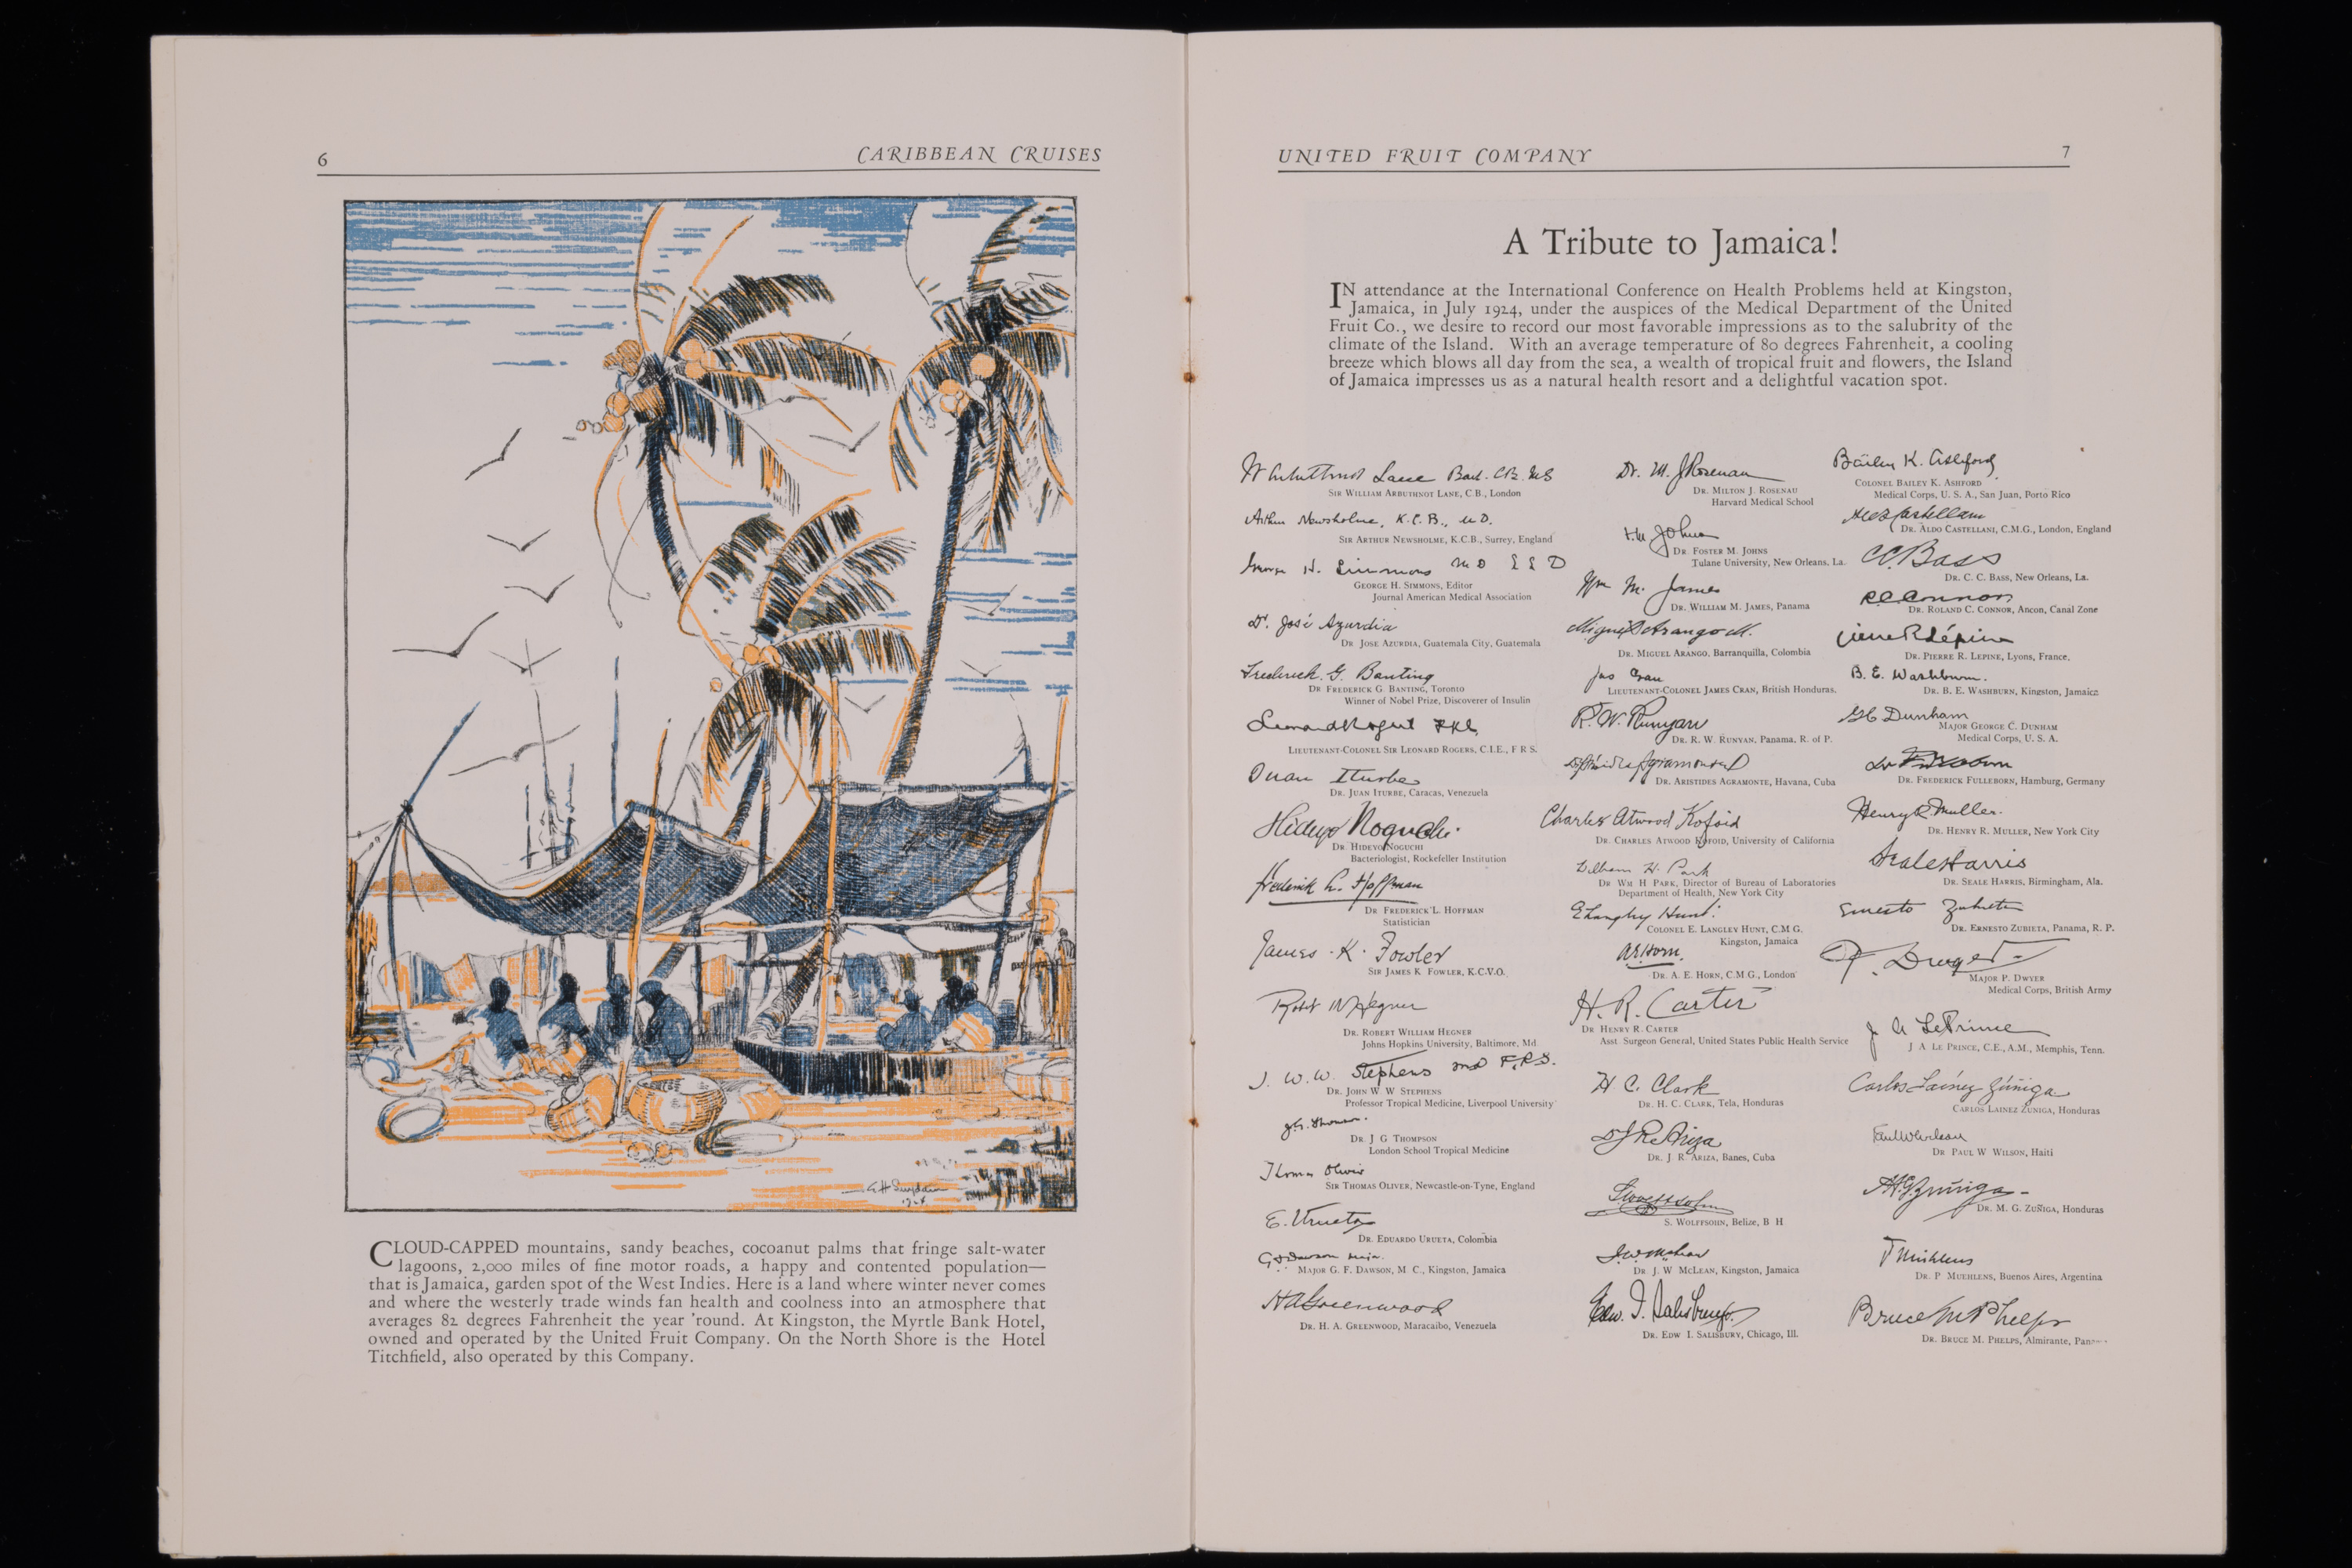 6
CARIBBEAN CRUISES
CLOUD-CAPPED mountains, sandy beaches, cocoanut palms that fringe salt-water
lagoons, 2,000 miles of fine motor roads, a happy and contented population—
that is Jamaica, garden spot of the West Indies. Here is a land where winter never comes
and where the westerly trade winds fan health and coolness into an atmosphere that
averages 82 degrees Fahrenheit the year 'round. At Kingston, the Myrtle Bank Hotel,
owned and operated by the United Fruit Company. On the North Shore is the Hotel
Titchfield, also operated by this Company.
UNITED FRUIT COMPANY
7
A Tribute to Jamaica!
IN attendance at the International Conference on Health Problems held at Kingston,
Jamaica, in July 1924, under the auspices of the Medical Department of the United
Fruit Co., we desire to record our most favorable impressions as to the salubrity of the
climate of the Island. With an average temperature of 80 degrees Fahrenheit, a cooling
breeze which blows all day from the sea, a wealth of tropical fruit and flowers, the Island
of Jamaica impresses us as a natural health resort and a delightful vacation spot.
SIR WILLIAM ARBUTHNOT LANE, C.B., London
Arthur Newsholme, K.C.B., M.D.
SIR ARTHUR NEWSHOLME, K.C.B., Surrey, England
George H. Simmons M D L L D
GEORGE H. SIMMONS, Editor
Journal American Medical Association
Dr. José Azurdia
DR. JOSE AZURDIA, Guatemala City, Guatemala
Frederick G. Banting
DR FREDERICK G. BANTING, Toronto
Winner of Nobel Prize, Discoverer of Insulin
LIEUTENANT-COLONEL SIR LEONARD ROGERS, C.I.E., F R S.
Juan Iturbe
DR. JUAN ITURBE, Caracas, Venezuela
Hideyo Noguchi
DR. HIDEYO NOGUCHI
Bacteriologist, Rockefeller Institution
Frederick L. Hoffman
DR FREDERICK L. HOFFMAN
Statistician
James K. Fowler
SIR JAMES K FOWLER, K.C.V.O.
Robert W Hegner
DR. ROBERT WILLIAM HEGNER
Johns Hopkins University, Baltimore, Md
J. W. W. Stephens MD F.R.S.
DR. JOHN W W STEPHENS
Professor Tropical Medicine, Liverpool University
DR. J G THOMPSON
London School Tropical Medicine
Thomas Oliver
SIR THOMAS OLIVER, Newcastle-on-Tyne, England
E. Urueta
DR. EDUARDO URUETA, Colombia
MAJOR G. F. DAWSON, M C., Kingston, Jamaica
H A Greenwood
DR. H. A. GREENWOOD, Maracaibo, Venezuela
Dr. M. J Rosenau
DR. MILTON J. ROSENAU
Harvard Medical School
DR. FOSTER M. JOHNS
Tulane University, New Orleans. La.
Wm M. James
DR. WILLIAM M. JAMES, Panama
Miguel Arango M.
DR. MIGUEL ARANGO, Barranquilla, Colombia
Jas Cran
LIEUTENANT-COLONEL JAMES CRAN, British Honduras.
R. W. Runyan
DR. R. W. RUNYAN, Panama, R. of P.
DR. ARISTIDES AGRAMONTE, Havana, Cuba
Charles Atwood Kofoid
DR. CHARLES ATWOOD KOFOID, University of California
William H. Park
DR WM H PARK, Director of Bureau of Laboratories
Department of Health, New York City
E Langley Hunt
COLONEL E. LANGLEY HUNT, C.M G.
Kingston, Jamaica
A E Horn.
DR. A. E. HORN, C.M G., London
H. R. Carter
DR HENRY R. CARTER
Asst Surgeon General, United States Public Health Service
H C. Clark
DR. H. C. CLARK, Tela, Honduras
Dr J R. Ariza
DR. J. R. ARIZA, Banes, Cuba
S. WOLFFSOHN, Belize, B H
DR. J. W McLEAN, Kingston, Jamaica
Edw. I. Salisbury.
DR. EDW I. SALISBURY, Chicago, Ill.
Bailey K. Ashford
COLONEL BAILEY K. ASHFORD
Medical Corps, U. S. A., San Juan, Porto Rico
DR. ALDO CASTELLANI, C.M.G., London, England
C C. Bass
DR. C. C. BASS, New Orleans, La.
R C Connor
DR. ROLAND C. CONNOR, Ancon, Canal Zone
Pierre R Lépine
DR. PIERRE R. LEPINE, Lyons, France,
B. E. Washburn.
DR. B. E. WASHBURN, Kingston, Jamaica
G C Dunham
MAJOR GEORGE C. DUNHAM
Medical Corps, U. S. A.
DR. FREDERICK FULLEBORN, Hamburg, Germany
Henry R. Muller.
DR. HENRY R. MULLER, New York City
Seale Harris
DR. SEALE HARRIS, Birmingham, Ala.
Ernesto Zubieta
DR. ERNESTO ZUBIETA, Panama, R. P.
P. Dwyer
MAJOR P. DWYER
Medical Corps, British Army
J A LePrince
J A LE PRINCE, C.E., A.M., Memphis, Tenn.
Carlos Laínez Zúñiga
CARLOS LAINEZ ZUNIGA, Honduras
Paul W Wilson
DR PAUL W WILSON, Haiti
DR. M. G. ZUÑIGA, Honduras
P Mühlens
DR. P MUEHLENS, Buenos Aires, Argentina
Bruce M Phelps
DR. BRUCE M. PHELPS, Almirante,